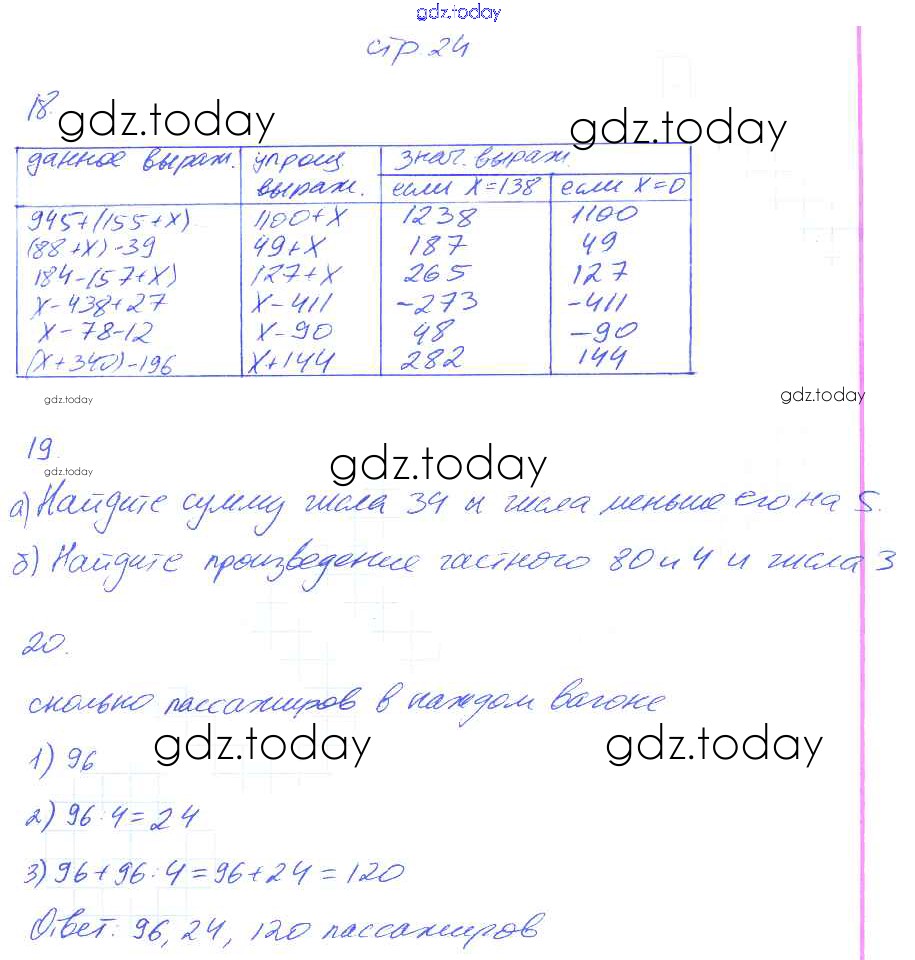 gdz.today
стр 24
18.
gdz.today gdz.today
данное выраж. упрощ выраж. знач. выраж.
если x=138 если x=0
945+(155+x) 1100+x 1238 1100
(88+x)-39 49+x 187 49
184-(57+x) 127+x 265 127
x-438+27 x-411 -273 -411
x-78-12 x-90 48 -90
(x+340)-196 x+144 282 144
gdz.today gdz.today
19.
gdz.today gdz.today
а) Найдите сумму числа 34 и числа меньше его на 5.
б) Найдите произведение частного 80 и 4 и числа 3
20.
сколько пассажиров в каждом вагоне
gdz.today gdz.today
1) 96
2) 96:4=24
3) 96+96:4=96+24=120
Ответ: 96, 24, 120 пассажиров